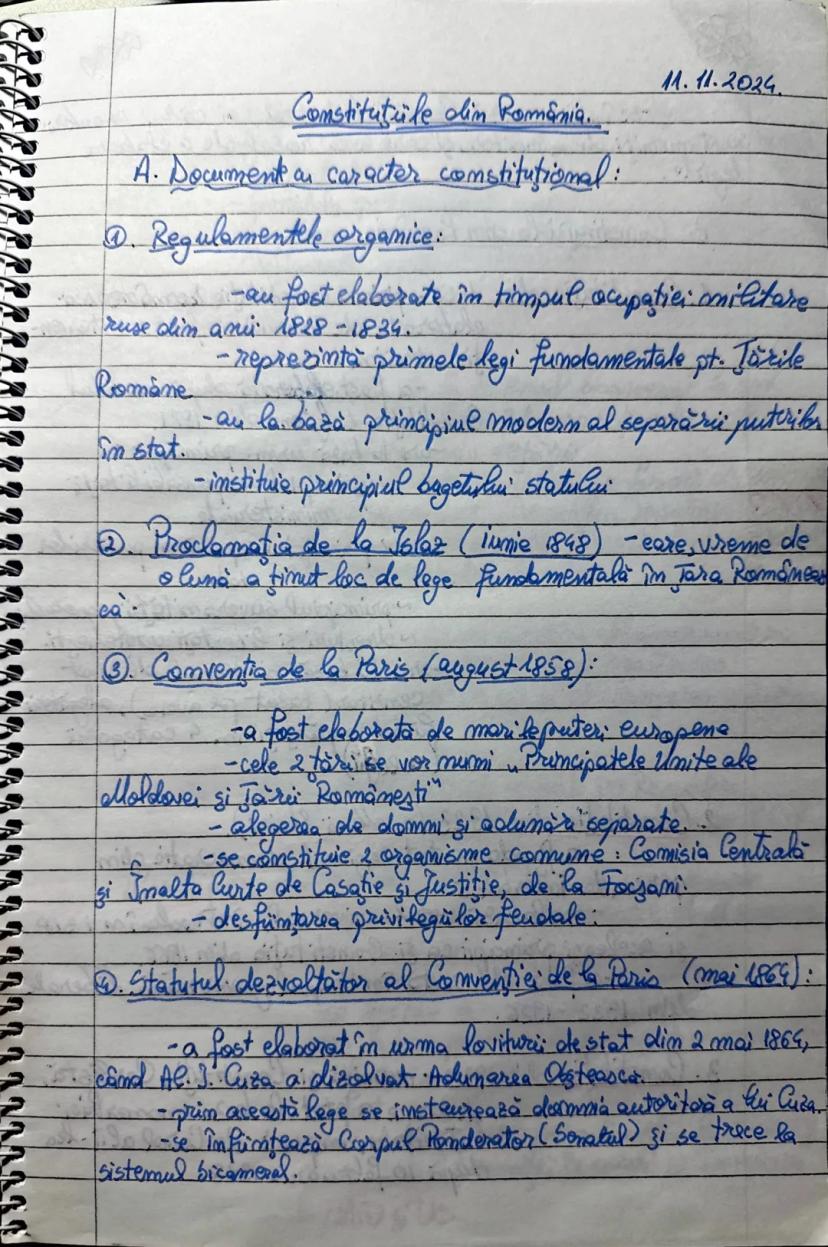 11.11.2024.
Constituțiile din România.
A. Document cu caracter constituțional:
①. Regulamentele organice:
-au fost elaborate în timpul ocupației militare
ruse din anii 1828-1834.
-reprezintă primele legi fundamentale pt. Țările
Române.
-au la bază principiul modern al separării puterilor
în stat.
-instituie principiul bugetului statului
②. Proclamația de la Islaz (iunie 1848) -care, vreme de
o lună a ținut loc de lege fundamentală în Țara Româneas
că.
③. Convenția de la Paris (august 1858):
-a fost elaborată de marile puteri europene
-cele 2 țări se vor numi „Principatele Unite ale
Moldovei și Țării Românești"
-alegerea de domni și adunări separate.
-se constituie 2 organisme comune: Comisia Centrală
și Înalta Curte de Casație și Justiție, de la Focșani.
-desființarea privilegiilor feudale.
④. Statutul dezvoltător al Convenției de la Paris (mai 1864):
-a fost elaborat în urma loviturii de stat din 2 mai 1864,
când Al. I. Cuza a dizolvat Adunarea Obștească.
-prin această lege se instaurează domnia autoritară a lui Cuza.
-se înființează Corpul Ponderator (Senatul) și se trece la
sistemul bicameral.